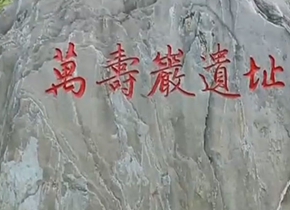 萬壽巖遺址